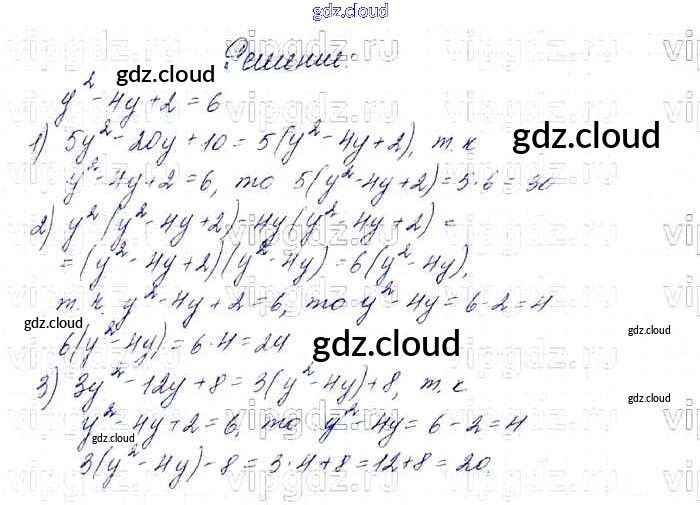 gdz.cloud
Решение:
gdz.cloud
y² - 4y + 2 = 6
1) 5y² - 20y + 10 = 5(y² - 4y + 2), т.к
gdz.cloud
y² - 4y + 2 = 6, то 5(y² - 4y + 2) = 5·6 = 30
2) y²(y² - 4y + 2) - 4y(y² - 4y + 2) =
= (y² - 4y + 2)(y² - 4y) = 6(y² - 4y),
т.к. y² - 4y + 2 = 6, то y² - 4y = 6 - 2 = 4
gdz.cloud
gdz.cloud
6(y² - 4y) = 6·4 = 24
gdz.cloud
3) 3y² - 12y + 8 = 3(y² - 4y) + 8, т.к
gdz.cloud
y² - 4y + 2 = 6, то y² - 4y = 6 - 2 = 4
gdz.cloud
3(y² - 4y) - 8 = 3·4 + 8 = 12 + 8 = 20
vipgdz.ru